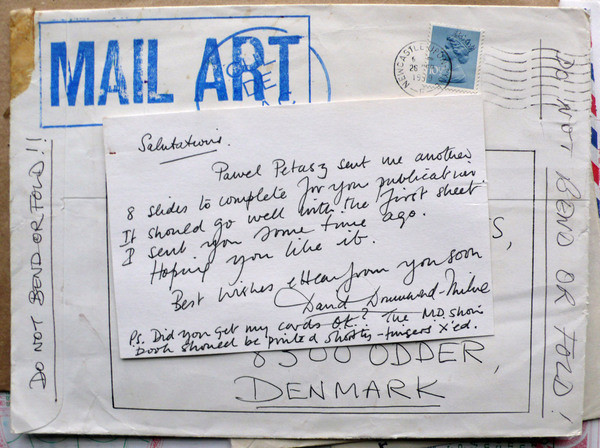 MAIL ART
DE
NEWCASTLE
26
10
Salutations.
Pawel Petasz sent me another
8 slides to complete for you publication.
It should go well with the first sheet
I sent you some time ago.
Hoping you like it.
Best wishes & Hear from you soon
David Drummond-Milne
P.s. Did you get my cards OK? The M.D. show
book should be printed shortly - fingers X'ed.
8300 ODDER,
DENMARK
DO NOT BEND OR FOLD!!
DO NOT BEND OR FOLD!